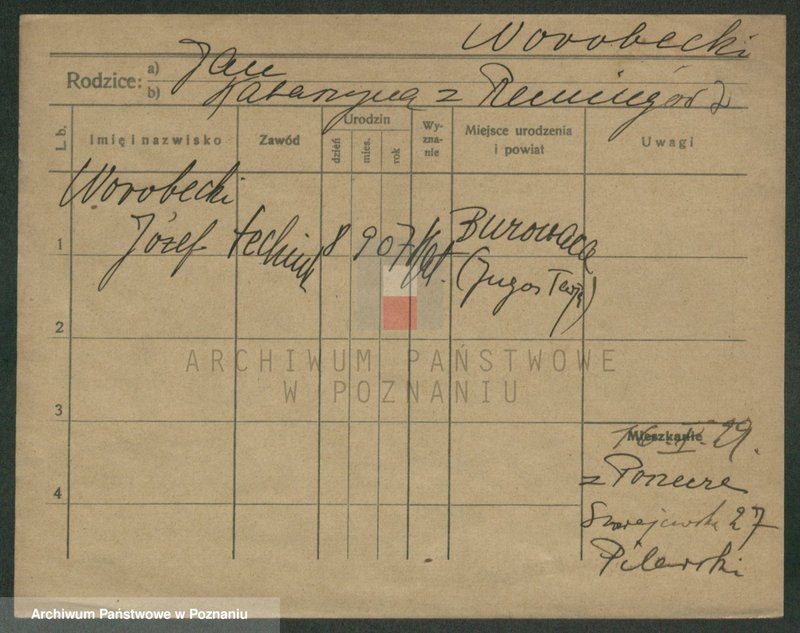 Worobecki
Rodzice: a) Jan
b) Katarzyna z
L. b. Imię i nazwisko Zawód Urodzin dzień mies. rok Wyznanie Miejsce urodzenia i powiat Uwagi
Worobecki
1 Józef technik 8 9 07 kat. Burowaca
2
ARCHIWUM PAŃSTWOWE
W POZNANIU
3
Mieszkanie 29.
z
4 27
Pilewski
Archiwum Państwowe w Poznaniu